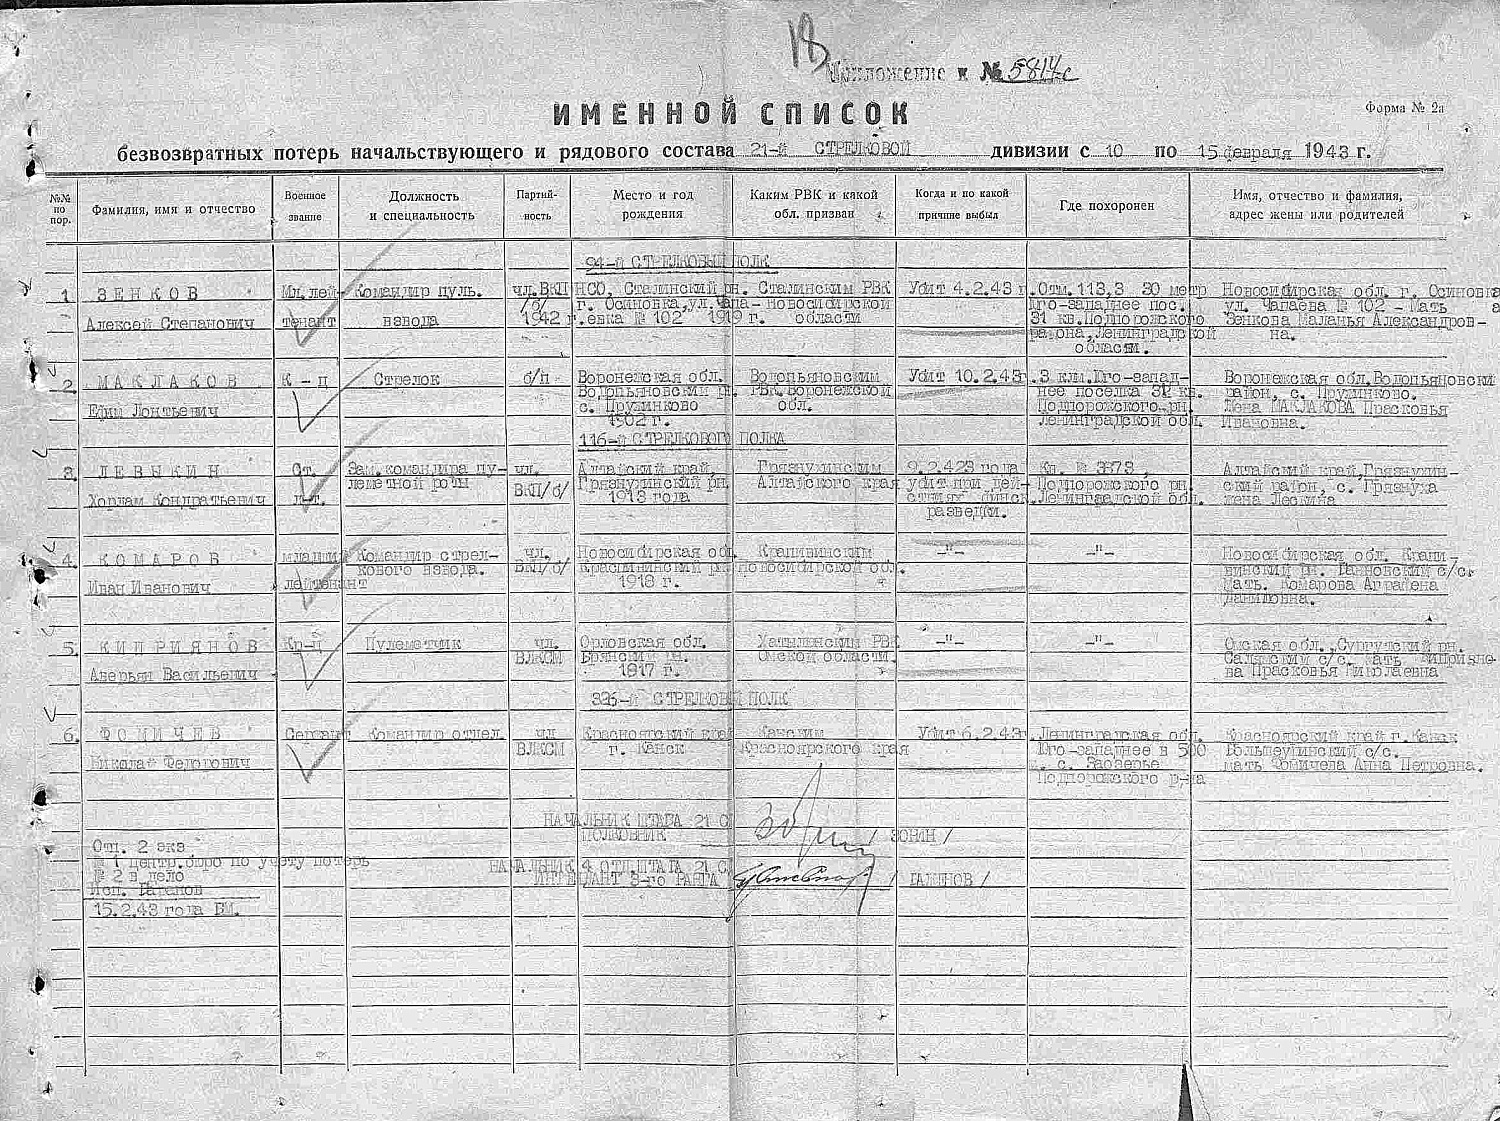 18
Приложение к № 5814с
Форма № 2а
ИМЕННОЙ СПИСОК
безвозвратных потерь начальствующего и рядового состава 21-й СТРЕЛКОВОЙ дивизии с 10 по 15 февраля 1943 г.
№№ по пор.
Фамилия, имя и отчество
Военное звание
Должность и специальность
Партийность
Место и год рождения
Каким РВК и какой обл. призван
Когда и по какой причине выбыл
Где похоронен
Имя, отчество и фамилия, адрес жены или родителей
94-й СТРЕЛКОВЫЙ ПОЛК
1. ЗЕНКОВ Мл.лей- Командир пуль. чл.ВКП НСО, Сталинский рн. Сталинским РВК Убит 4.2.43 г. Отм. 113,3 30 метр Новосибирская обл. г. Осиновка
/б/ г. Осиновка,ул.Чапа- Новосибирской Юго-западнее пос. ул. Чапаева № 102 - Мать
Алексей Степанович тенант взвода 1942 г. евка № 102 1919 г. области 31 кв.Подпорожского Зенкова Маланья Александров-
района,Ленинградской на.
области.
2. МАКЛАКОВ К - ц Стрелок б/п Воронежская обл. Водопьяновским Убит 10.2.43г. 3 клм.Юго-запад- Воронежская обл.Водопьяновски
Водопьяновский рн. РВК.Воронежской нее поселка 31 кв. район, с. Пружинково.
Ефим Лонтьевич с. Пружинково обл. Подпорожского рн. Жена МАКЛАКОВА Прасковья
1902 г. Ленинградской обл. Ивановна.
116-й СТРЕЛКОВОГО ПОЛКА
3. ЛЕВЫКИН Ст. Зам.командира пу- чл. Алтайский край, Грязнухинским 9.2.423 года Кв. № 3373, Алтайский край,Грязнухин-
леметной роты ВКП/б/ Грязнухинский рн. Алтайского края убит при дей- Подпорожского рн. ский район, с. Грязнуха
Хорлам Кондратьевич л-т. 1913 года ствиях финск. Ленинградской обл. жена
разведки.
4. КОМАРОВ младший Командир стрел- чл. Новосибирская обл. Крапивинским -"- -"- Новосибирская обл. Крапи-
кового взвода. ВКП/б/ рн. Новосибирской обл. винский рн. с/с.
Иван Иванович лейтенант 1918 г. мать. Комарова Аграфена
Даниловна.
5. КИПРИЯНОВ Кр-ц Пулеметчик чл. Орловская обл. РВК -"- -"- Омская обл.,Сургутский рн.
ВЛКСМ Брянский рн. Омской области. с/с. мать Киприяно-
Аверьян Васильевич 1917 г. ва Прасковья Николаевна
326-й СТРЕЛКОВЫЙ ПОЛК
6. ФОМИЧЕВ Сержант Командир отдел. чл. Красноярский край Канским Убит 6.2.43г. Ленинградская обл. Красноярский край г.Канск
ВЛКСМ г. Канск Красноярского края Юго-западнее в 500 с/с.
Николай Федорович м. с. Заозерье мать Фомичева Анна Петровна.
Подпорожского р-на
НАЧАЛЬНИК ШТАБА 21 СД
ПОЛКОВНИК / ЗОНИН /
НАЧАЛЬНИК 4 ОТД.ШТАБА 21 СД
ИНТЕНДАНТ 3-го РАНГА
Отп. 2 экз
№ 1 центр.бюро по учету потерь
№ 2 в дело
15.2.43 года БМ.